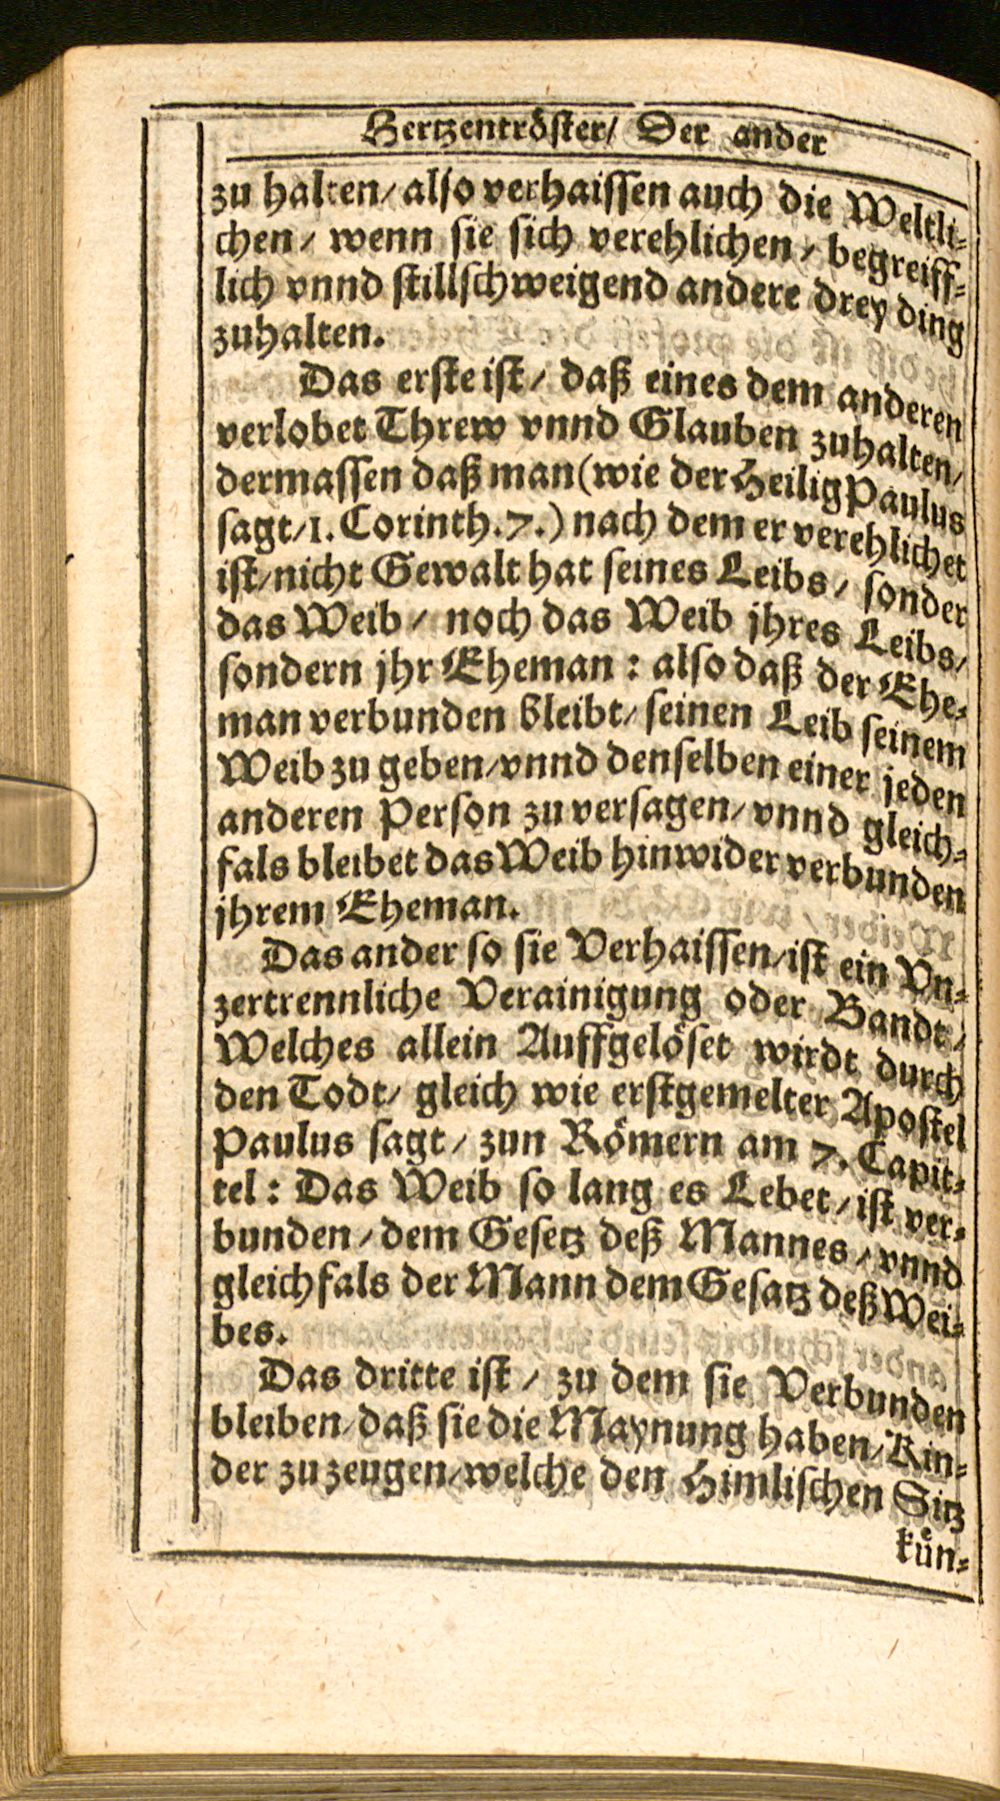 Hertzentröster/ Der ander
zu halten/ also verhaissen auch die Weltli-
chen/ wenn sie sich verehlichen/ begreiff-
lich vnnd stillschweigend andere drey ding
zuhalten.
Das erste ist/ daß eines dem anderen
verlobet Threw vnnd Glauben zuhalten/
dermassen daß man (wie der Heilig Paulus
sagt/ 1. Corinth. 7.) nach dem er verehlichet
ist/ nicht Gewalt hat seines Leibs/ sonder
das Weib/ noch das Weib jhres Leibs/
sondern jhr Eheman: also daß der Ehe-
man verbunden bleibt/ seinen Leib seinem
Weib zu geben/ vnnd denselben einer jeden
anderen Person zu versagen/ vnnd gleich-
fals bleibet das Weib hinwider verbunden
jhrem Eheman.
Das ander so sie Verhaissen/ ist ein Vn-
zertrennliche Verainigung oder Bandt/
Welches allein Auffgelöset wirdt durch
den Todt/ gleich wie erstgemelter Apostel
Paulus sagt/ zun Römern am 7. Capit-
tel: Das Weib so lang es Lebet/ ist ver-
bunden/ dem Gesetz deß Mannes/ vnnd
gleichfals der Mann dem Gesatz deß Wei-
bes.
Das dritte ist/ zu dem sie Verbunden
bleiben/ daß sie die Maynung haben/ Kin-
der zu zeugen/ welche den Himlischen Sitz
kuͤn-